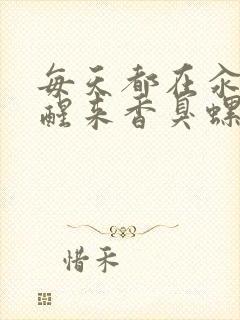 每天都在汆
醒来香臭螺
惜禾